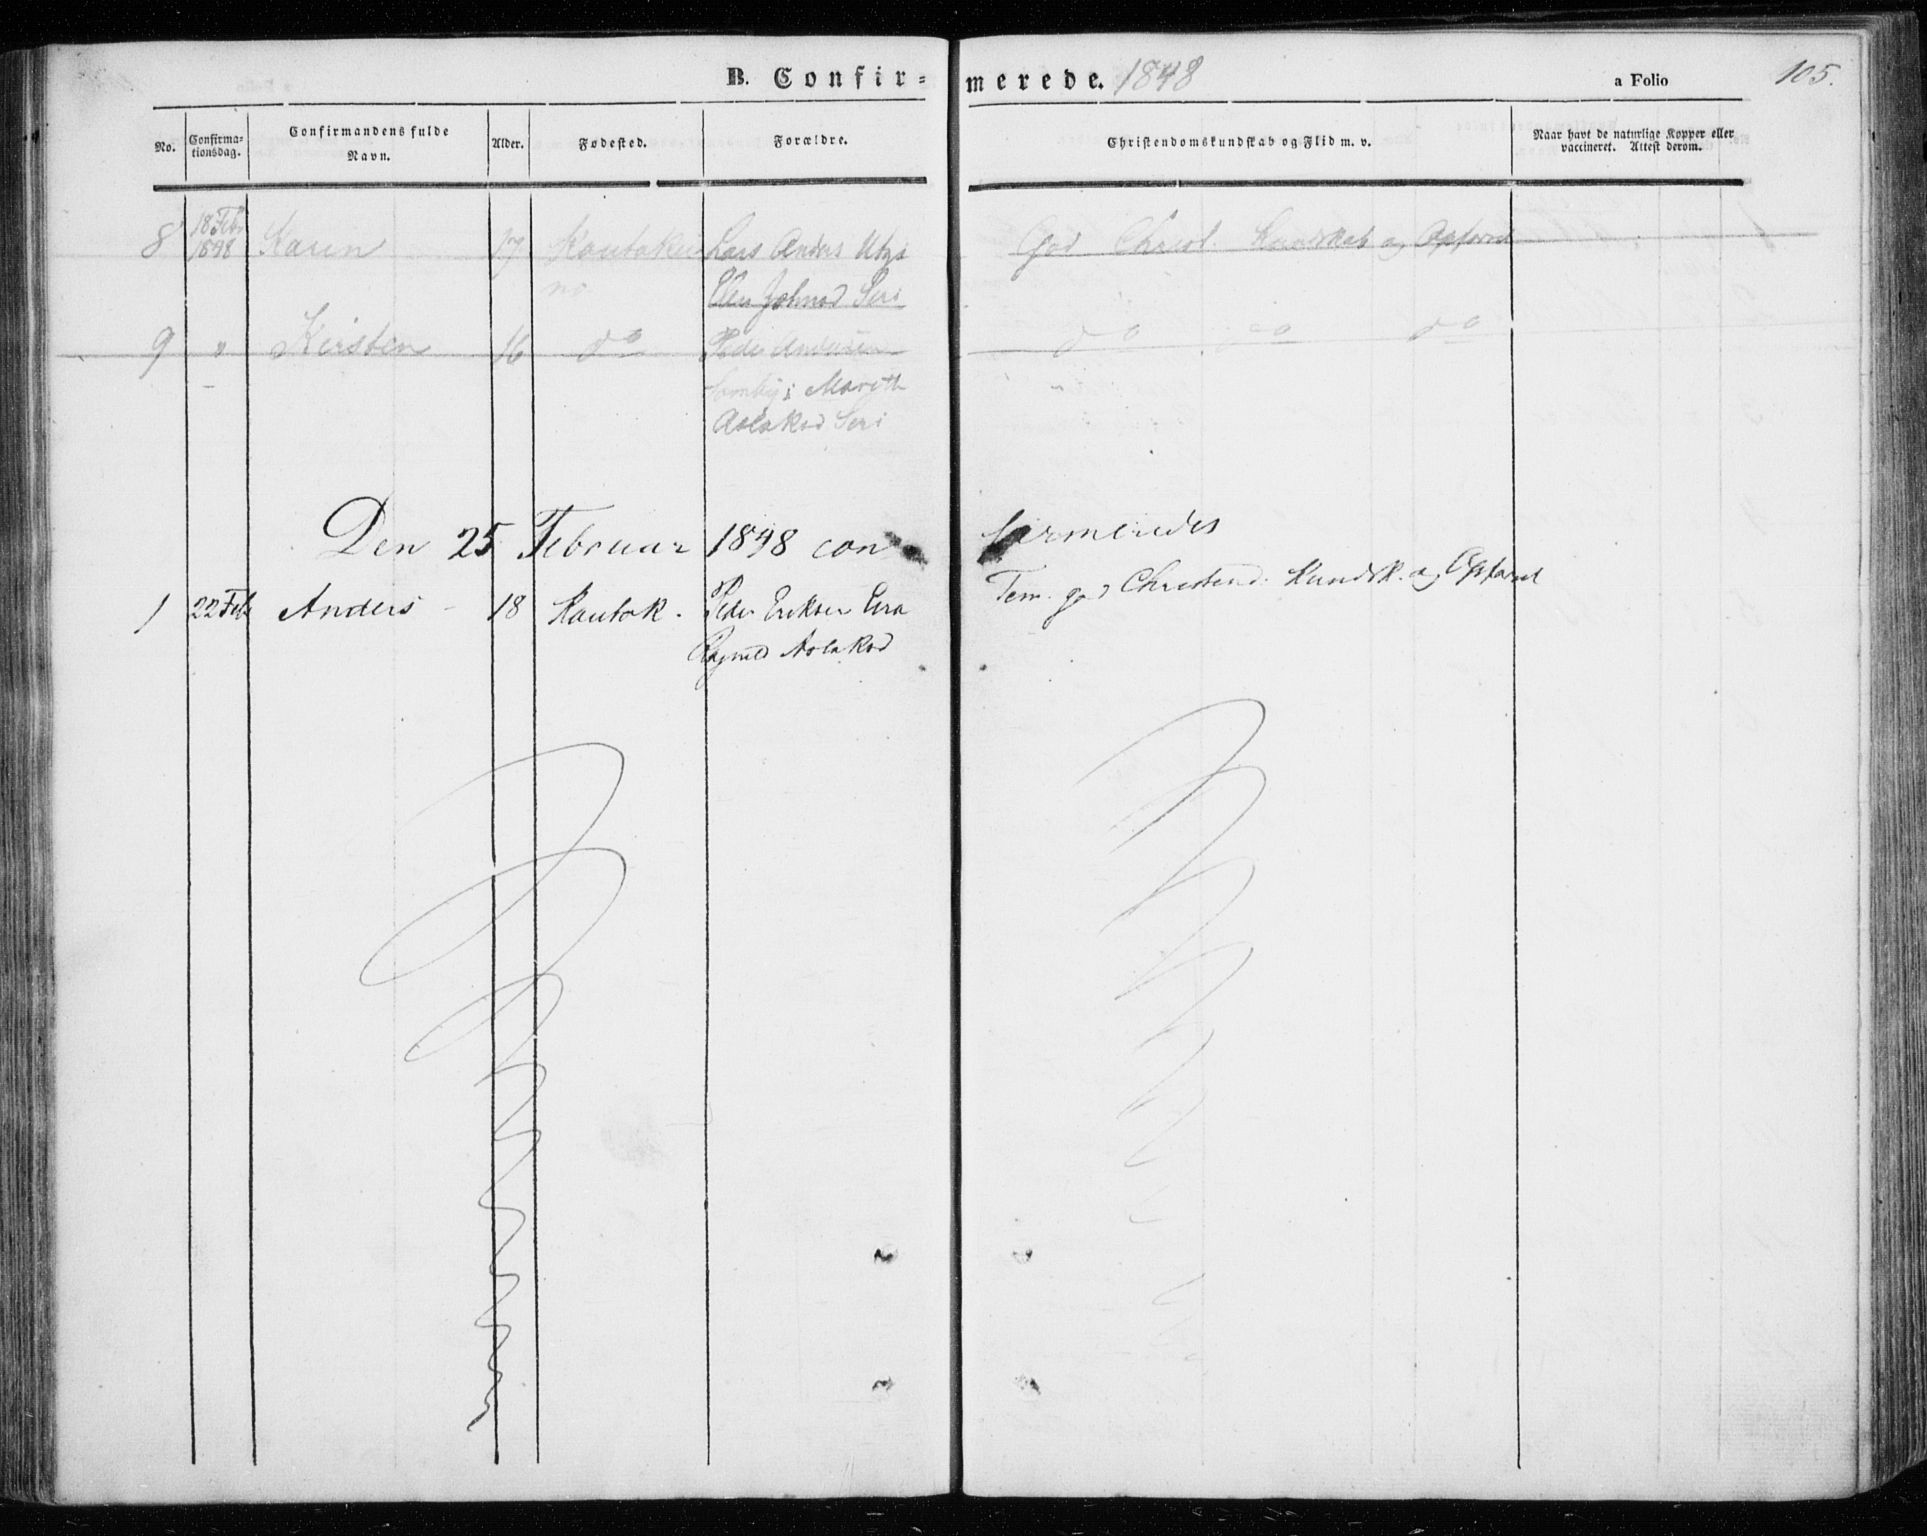 B. Confir= merede. 1848 a Folio 105.
No. Confirma-tionsdag. Confirmandens fulde Navn. Alder. Fødested. Forældre. Christendomskundskab og Flid m. v. Naar havt de naturlige Kopper eller vaccineret. Attest derom.
8 18 Feb 1848 Karin 17 Kautokei Lars Anders Utzi God Christ. Kundskab og Opførsel
no Ellen Johnsd Seri
9 " Kirsten 16 do Peder Andersen do do do
Somby; Marith "
Aslaksd Seri
Den 25 Februar 1848 con firmeredes
1 22 Feb Anders - 18 Kautok. Peder Eriksen Eira Tem. god Christend. Kundsk. og Opførsel
Ragnild Aslaksd